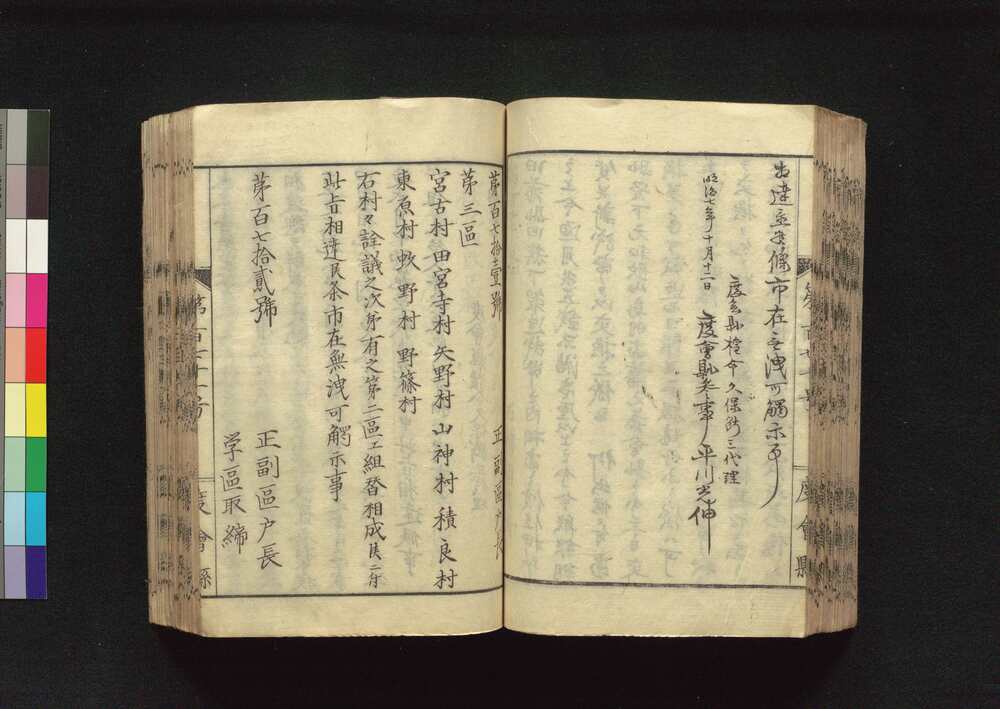 相達候條市在無洩可觸示事
度會縣權令久保断三代理
明治七年十月十二日 度會縣参事平川光伸
度會縣
第百七拾壹號 正副區戸長
第三區
宮古村田宮寺村矢野村山神村積良村
東原村蚊野村野篠村
右村々詮議之次第有之第二區ェ組替相成候ニ付
此旨相達候条市在無洩可觸示事
第百七拾貳號 正副區戸長
学區取締
第百七十一号 度會縣